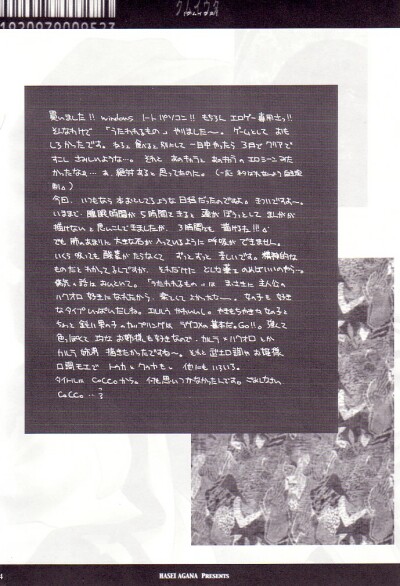 クムイウタ
1920979000527
買いました!! windows ノートパソコン!! もちろん エロゲー専用さっ!!
そんなわけで 「うたわれるもの」 やりました〜。ゲームとして おも
しろかったです。ねると食べると 一日中やったら 3日で クリアで
すこし さみしいような…。それと
かったなぁ… 絶対あると 思ってたのに。
今回、いつもなら 本おとしてるような 日程だったのですよ。
いままで 睡眠時間が 5時間をきると 頭が ぼうっとして まんがが
描けないと 思いこんできましたが、3時間でも 描けるね!!!
でも 肺のあたりに 大きな石が 入っているように 呼吸が できません。
いくら 吸っても 酸素が たりなくて ずっとずっと 苦しいです。精神的な
ものだと わかってるんですが、それだけに どんな薬を のめばいいのやら〜。
病気の話は おいといて。「うたわれるもの」は まさに 主人公の
ハクオロ 好きになれたから 楽しくて よかったな〜。女の子も 好き
なタイプ いっぱいだしね。エルルゥ かわいいし。やきもちやきな 女の子と
ちょと 鈍い男の子の カップリングは ラブコメの 基本だ。Go!! 強くて
色っぽくて お姉様も 好きなので、カルラ×ハクオロ とか
カルラ 描きたかったですね〜。それと 武士口調や お嬢様
口調モエで トウカとか クウヤも 〃 他にも いろいろ。
タイトルは COCCOから。何も思いつかなかったんです。ごめんなさい
COCCO…?
4
HASEI AGANA PRESENTS